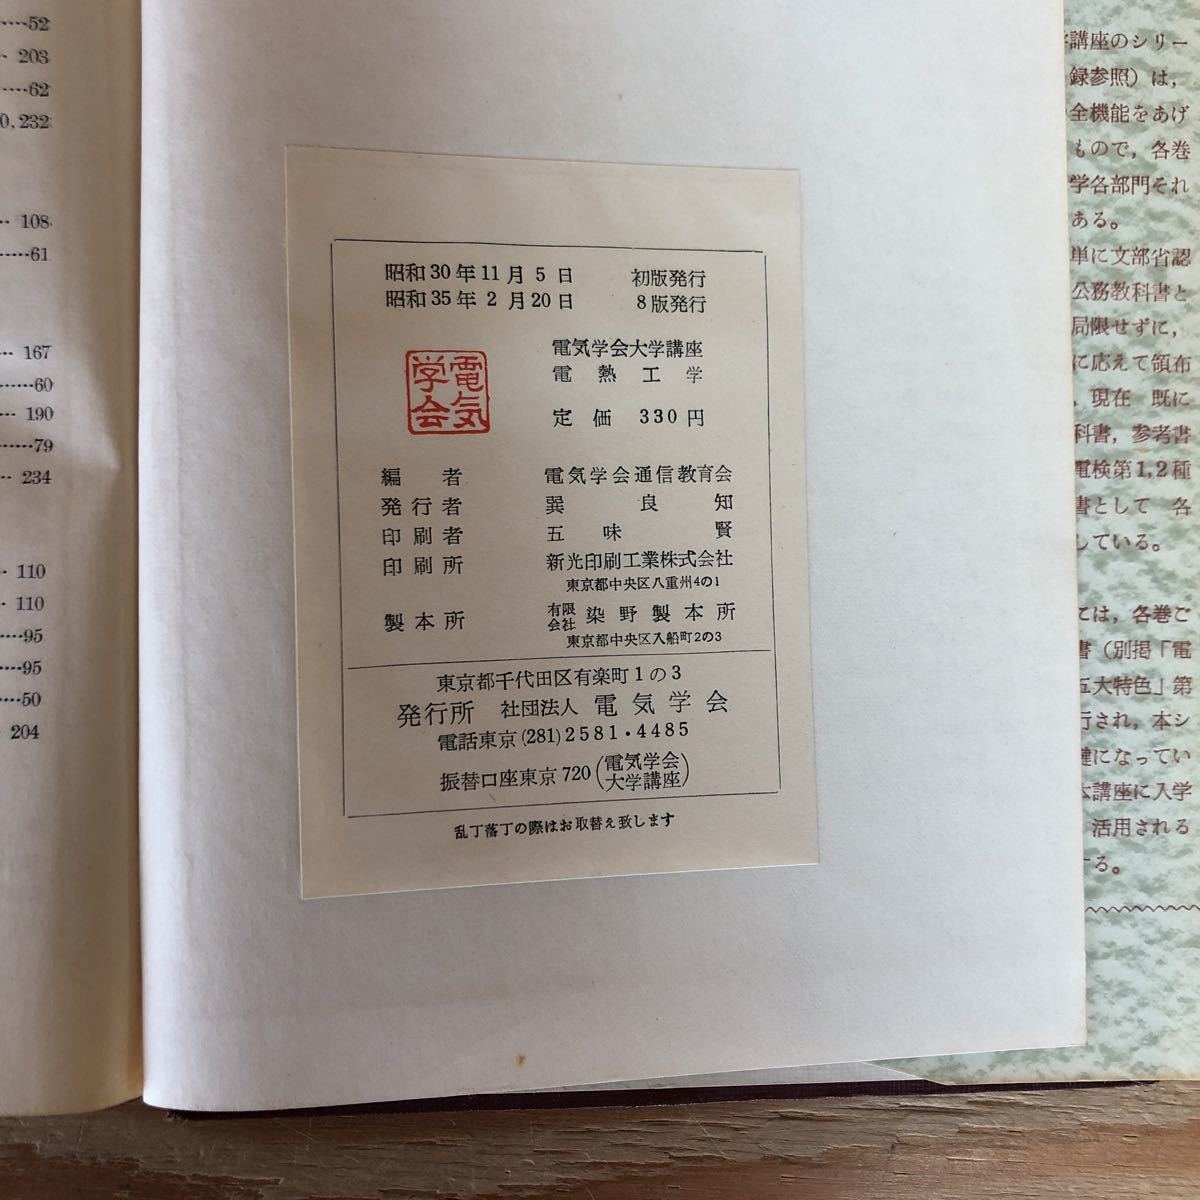 52
203
62
0,232
108
61
167
60
190
79
234
110
110
95
95
50
204
昭和30年11月5日 初版発行
昭和35年2月20日 8版発行
電気学会
電気学会大学講座
電熱工学
定価 330円
編者 電気学会通信教育会
発行者 巽良知
印刷者 五味賢
印刷所 新光印刷工業株式会社
東京都中央区八重州4の1
製本所 有限会社 染野製本所
東京都中央区入船町2の3
東京都千代田区有楽町1の3
発行所 社団法人 電気学会
電話東京(281)2581・4485
振替口座東京720(電気学会大学講座)
乱丁落丁の際はお取替え致します
講座のシリー
録参照)は,
全機能をあげ
もので,各巻
学各部門それ
ある。
単に文部省認
公務教科書と
局限せずに,
に応えて領布
,現在 既に
科書,参考書
電検第1,2種
書として 各
している。
ては,各巻ご
書(別掲「電
五大特色」第
行され,本シ
鍵になってい
本講座に入学
活用される
する。